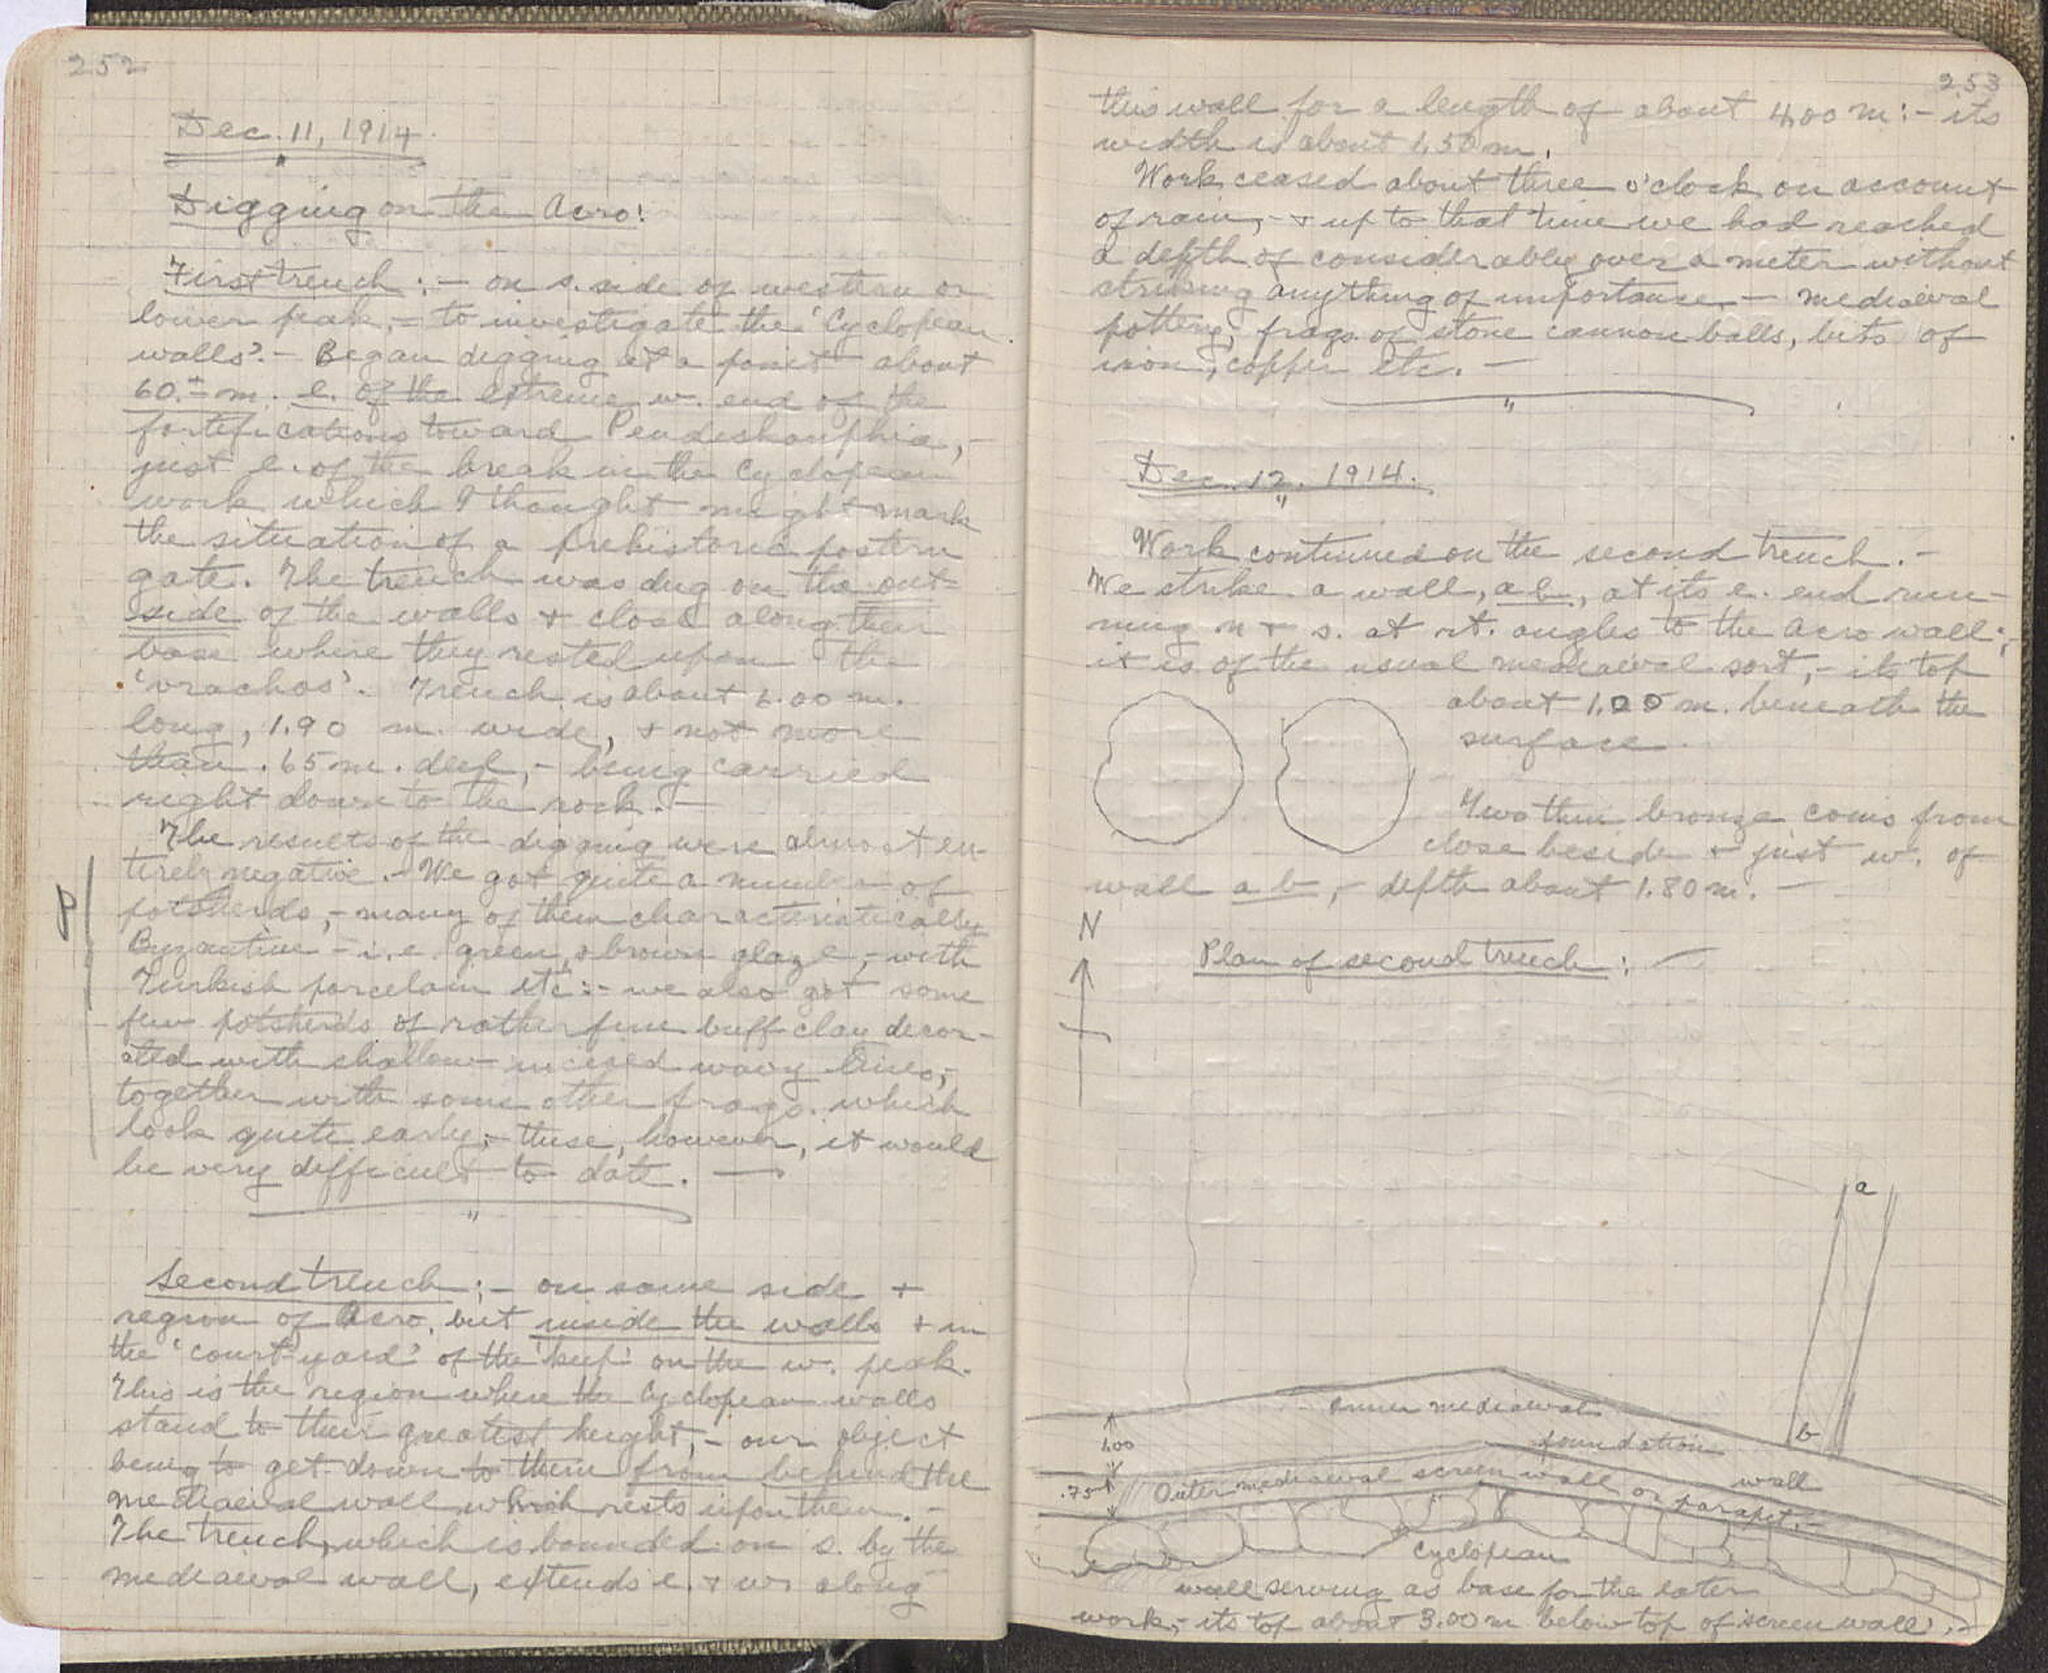 252
Dec. 11, 1914.
Digging on the Acro!
First trench :- on s. side of western or
lower peak, - to investigate the 'Cyclopean
walls'. - Began digging at a point about
60.± m. e. of the extreme w. end of the
fortifications toward Pendeskouphia, -
just e. of the break in the Cyclopean
work which I thought might mark
the situation of a prehistoric postern
gate. The trench was dug on the out-
side of the walls + close along their
base where they rested upon the
'vrachos'. Trench is about 6.00 m.
long, 1.90 m. wide, + not more
than .65 m. deep, - being carried
right down to the rock. -
The results of the digging were almost en-
tirely negative. - We got quite a number of
potsherds, - many of them characteristically
Byzantine - i.e. green, + brown glaze, - with
Turkish porcelain etc :- we also got some
few potsherds of rather fine buff clay decor-
ated with shallow incised wavy lines, -
together with some other frags. which
look quite early; - these, however, it would
be very difficult to date. -
P
Second trench :- on same side +
region of Acro. but inside the walls + in
the 'court-yard' of the 'keep' on the w. peak.
This is the region where the Cyclopean walls
stand to their greatest height, - our object
being to get down to them from behind the
mediaeval wall which rests upon them. -
The trench, which is bounded on s. by the
mediaeval wall, extends e. + w. along
253
this wall for a length of about 4.00 m :- its
width is about 1.50 m.
Work ceased about three o'clock on account
of rain, - + up to that time we had reached
a depth of considerably over a meter without
striking anything of importance - mediaeval
pottery, frags. of stone cannon balls, bits of
iron, copper etc. -
Dec. 12. 1914.
Work continued on the second trench. -
We strike a wall, ab, at its e. end run-
ning n + s. at rt. angles to the Acro wall; -
it is of the usual mediaeval sort, - its top
about 1.00 m. beneath the
surface.
Two thin bronze coins from
close beside + just w. of
wall ab, - depth about 1.80 m. -
N
Plan of second trench :-
a
b
Inner mediaeval
foundation
wall
1.00
.75
Outer mediaeval screen wall or parapet. -
Cyclopean
wall serving as base for the later
work, - its top about 3.00 m below top of screen wall. -